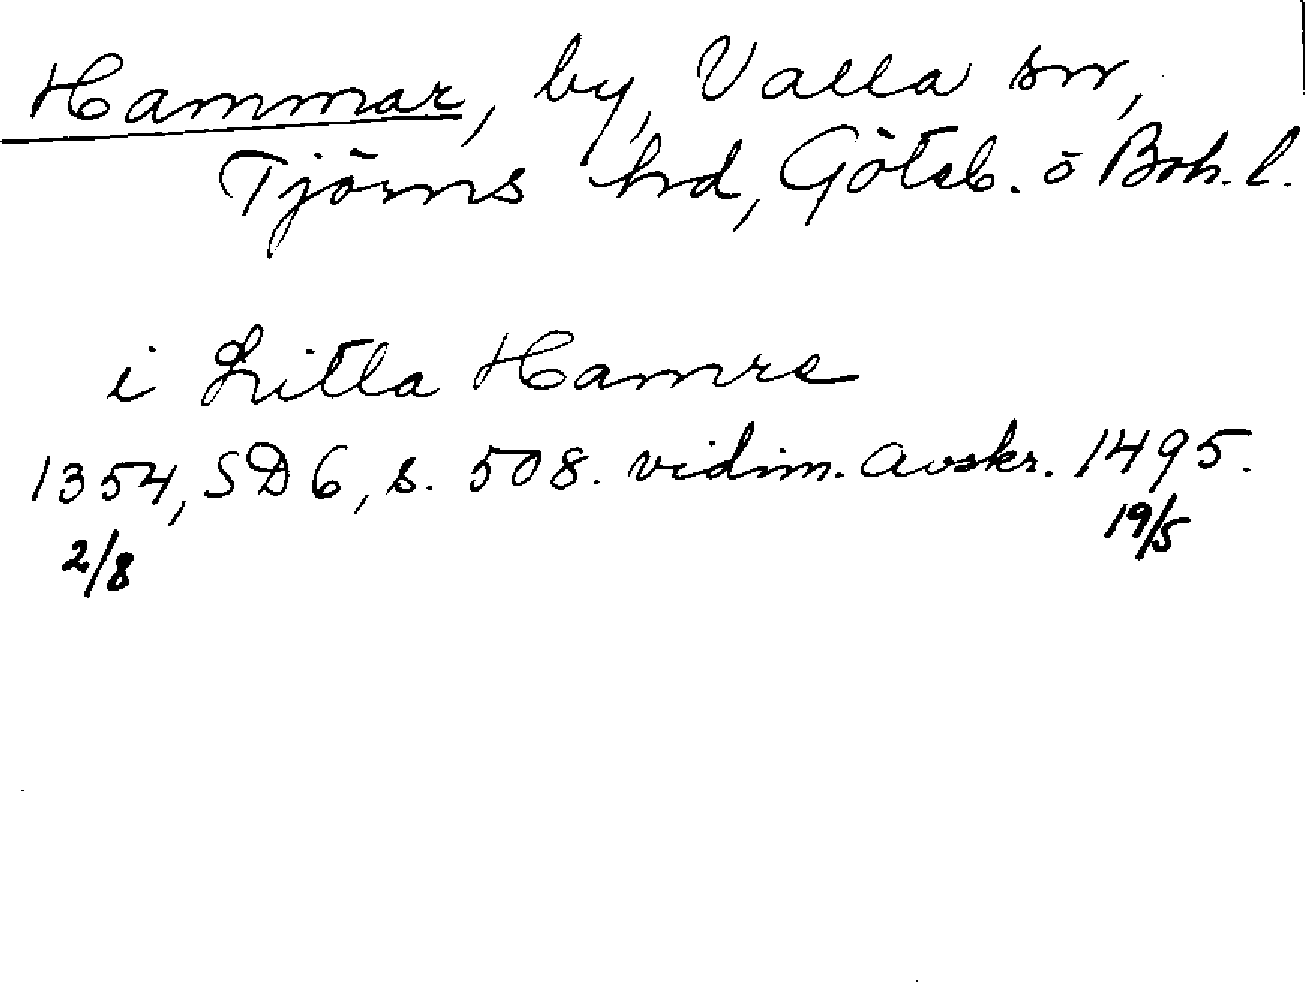 Hammar, by, Valla sn,
Tjörns hd, Göteb. o Boh. l.
i Litla Hamre
1354, SD 6, s. 508. vidim. avskr. 1495.
2/8 19/5